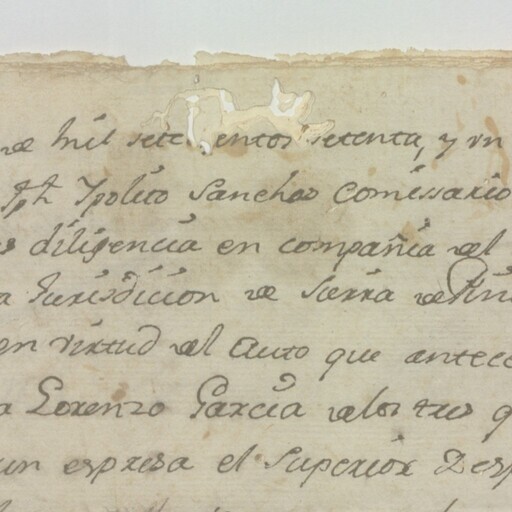 de mil setecientos setenta, y un
Jph Ypolito Sanches Comissario
diligencia en compañia del
Jurisdicion de Sierra de Pin
en virtud del auto que antece
Lorenzo Garcia delos tres q
un espresa el Superior Desp